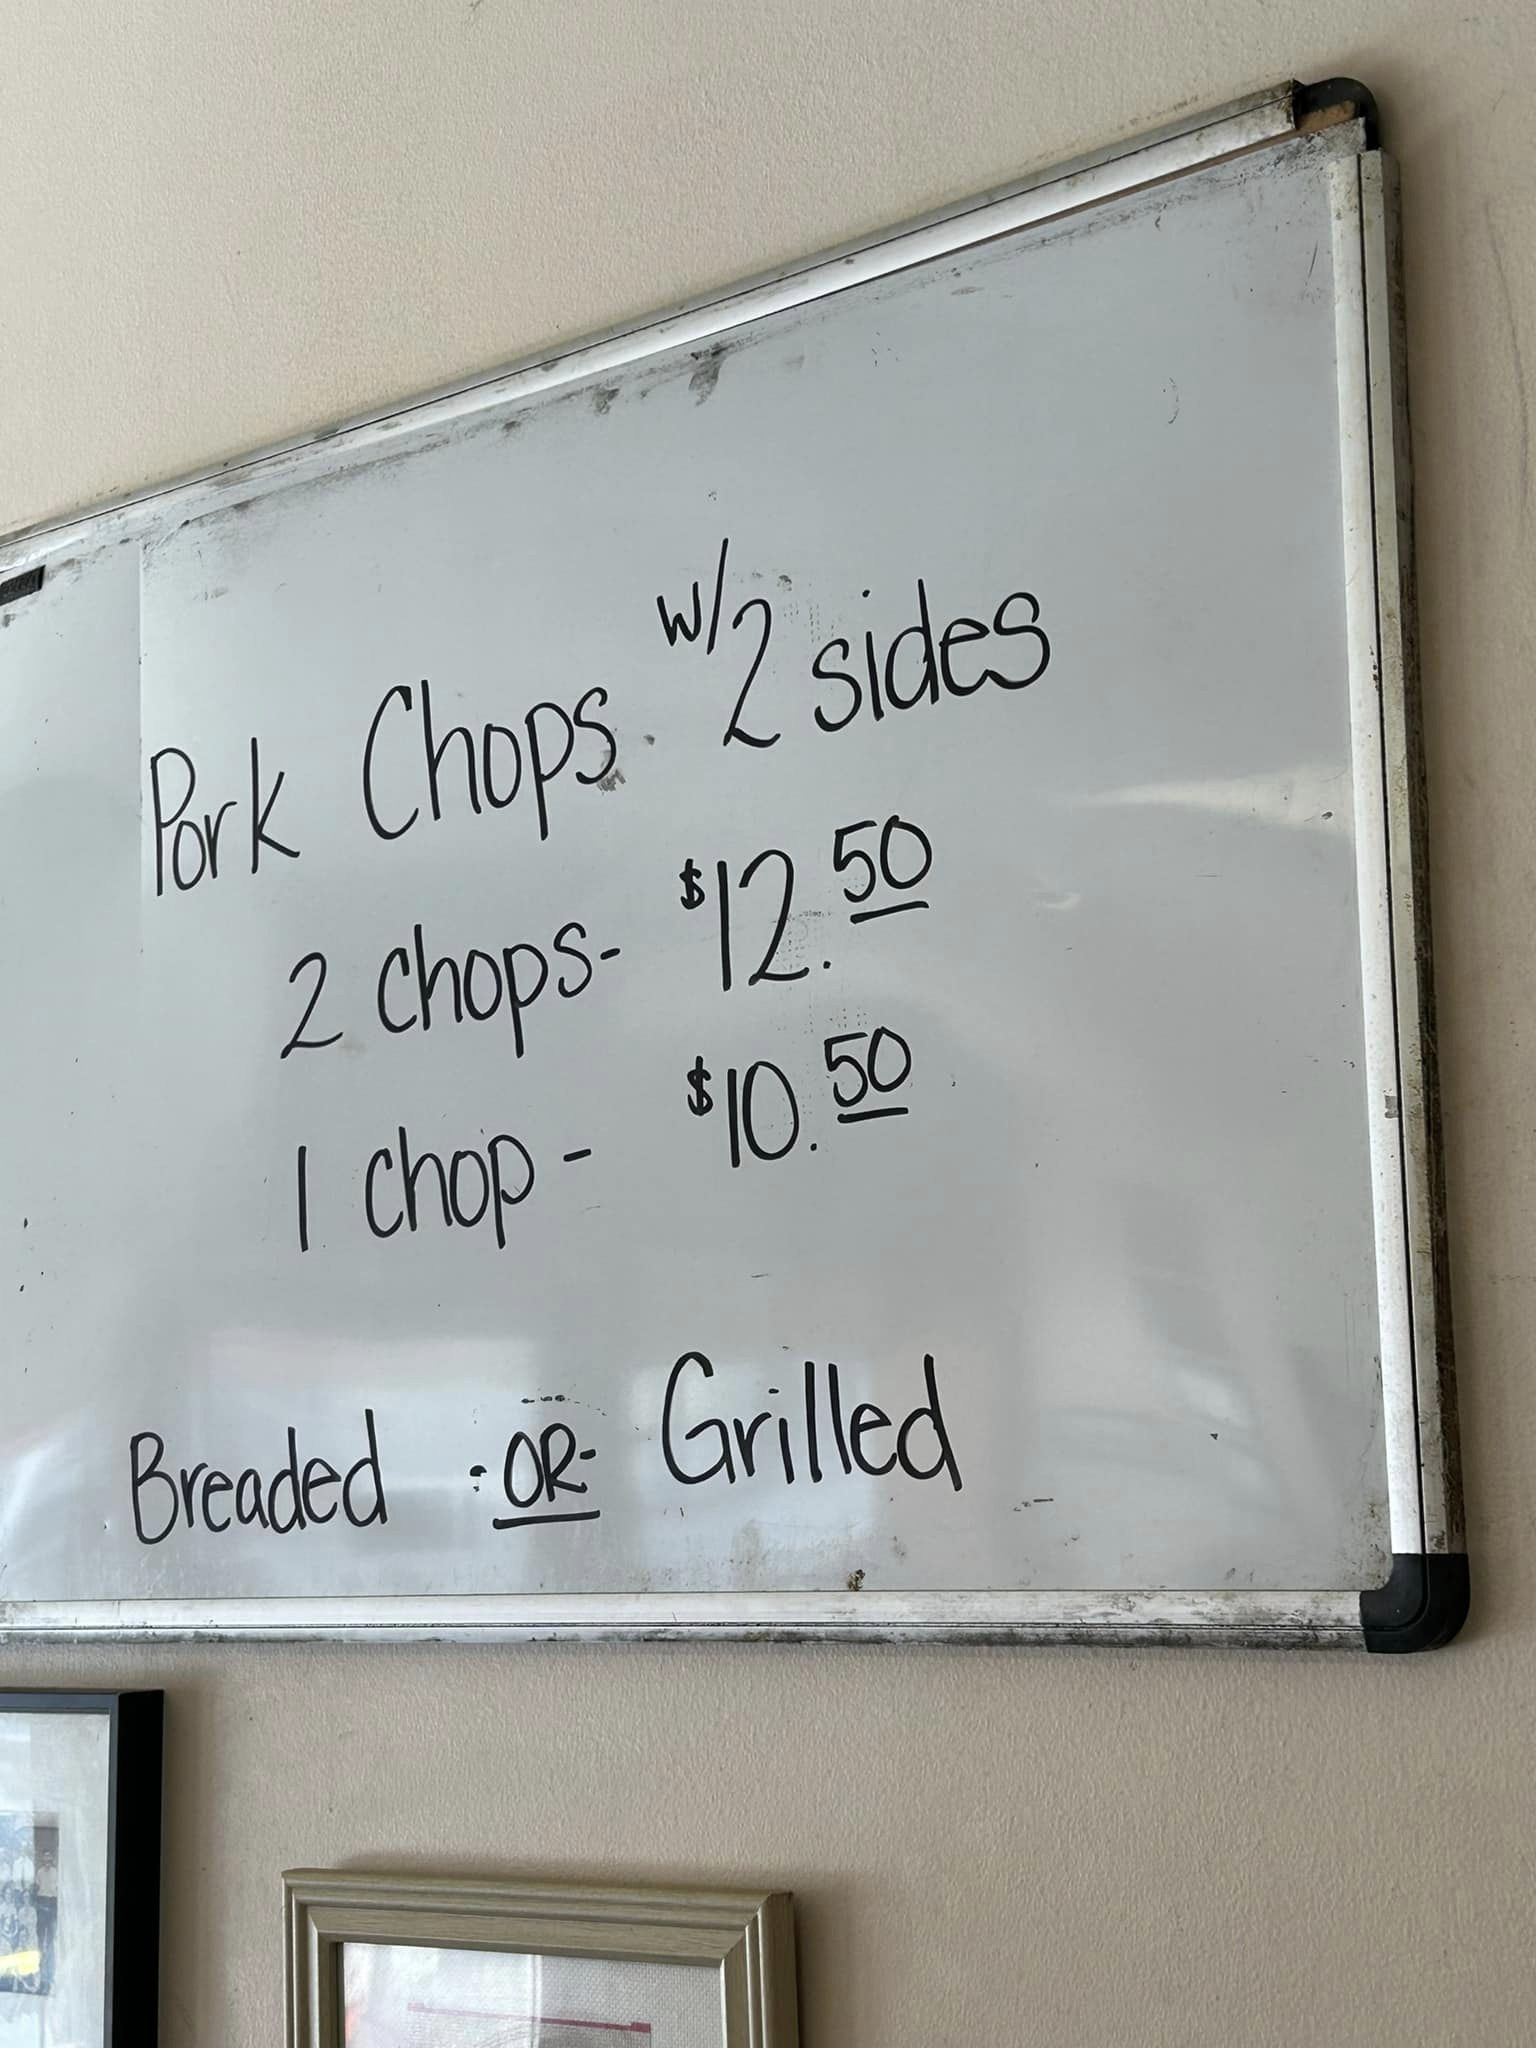 Pork Chops w/2 sides
2 chops- $12.50
1 chop - $10.50
Breaded -OR- Grilled